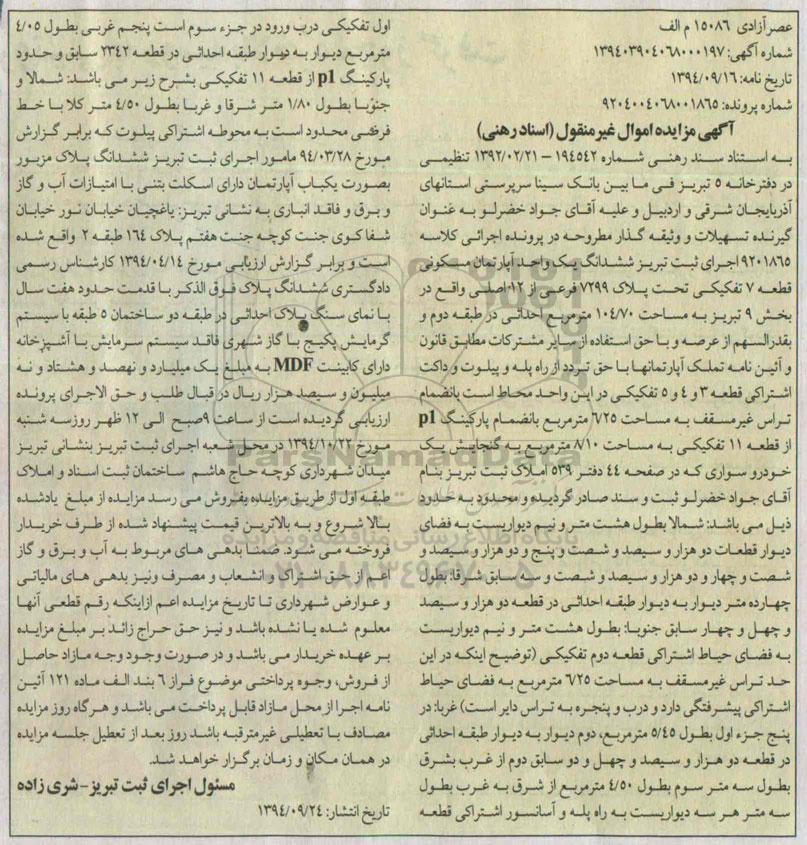 عصرآزادی ۱۵۰۸۶ م الف
شماره آگهی: ۱۳۹۴۰۳۹۰۴۰۶۸۰۰۰۱۹۷
تاریخ نامه: ۱۳۹۴/۰۹/۱۶
شماره پرونده: ۹۲۰۴۰۰۴۰۶۸۰۰۱۸۶۵
آگهی مزایده اموال غیرمنقول (اسناد رهنی)
به استناد سند رهنی شماره ۱۹۴۵۴۲ – ۱۳۹۲/۰۲/۲۱ تنظیمی
در دفترخانه ۵ تبریز فی ما بین بانک سینا سرپرستی استانهای
آذربایجان شرقی و اردبیل و علیه آقای جواد خضرلو به عنوان
گیرنده تسهیلات و وثیقه گذار مطروحه در پرونده اجرائی کلاسه
۹۲۰۱۸۶۵ اجرای ثبت تبریز ششدانگ یک واحد آپارتمان مسکونی
قطعه ۷ تفکیکی تحت پلاک ۷۲۹۹ فرعی از ۱۲ اصلی واقع در
بخش ۹ تبریز به مساحت ۱۰۴/۷۰ مترمربع احداثی در طبقه دوم و
بقدرالسهم از عرصه و با حق استفاده از سایر مشترکات مطابق قانون
و آئین نامه تملک آپارتمانها با حق تردد از راه پله و پیلوت و داکت
اشتراکی قطعه ۳ و ۴ و ۵ تفکیکی در این واحد محاط است بانضمام
تراس غیرمسقف به مساحت ۶/۲۵ مترمربع بانضمام پارکینگ p1
از قطعه ۱۱ تفکیکی به مساحت ۸/۱۰ مترمربع به گنجایش یک
خودرو سواری که در صفحه ۴۴ دفتر ۵۳۹ املاک ثبت تبریز بنام
آقای جواد خضرلو ثبت و سند صادر گردیده و محدود به حدود
ذیل می باشد: شمالا بطول هشت متر و نیم دیواریست به فضای
دیوار قطعات دو هزار و سیصد و شصت و پنج و دو هزار و سیصد و
شصت و چهار و دو هزار و سیصد و شصت و سه سابق شرقا: بطول
چهارده متر دیوار به دیوار طبقه احداثی در قطعه دو هزار و سیصد
و چهل و چهار سابق جنوبا: بطول هشت متر و نیم دیواریست
به فضای حیاط اشتراکی قطعه دوم تفکیکی (توضیح اینکه در این
حد تراس غیرمسقف به مساحت ۶/۲۵ مترمربع به فضای حیاط
اشتراکی پیشرفتگی دارد و درب و پنجره به تراس دایر است) غربا: در
پنج جزء اول بطول ۵/۴۵ مترمربع، دوم دیوار به دیوار طبقه احداثی
در قطعه دو هزار و سیصد و چهل و دو سابق دوم از غرب بشرق
بطول سه متر سوم بطول ۴/۵۰ مترمربع از شرق به غرب بطول
سه متر هر سه دیواریست به راه پله و آسانسور اشتراکی قطعه
اول تفکیکی درب ورود در جزء سوم است پنجم غربی بطول ۴/۰۵
مترمربع دیوار به دیوار طبقه احداثی در قطعه ۲۳۴۲ سابق و حدود
پارکینگ p1 از قطعه ۱۱ تفکیکی بشرح زیر می باشد: شمالا و
جنوبا بطول ۱/۸۰ متر شرقا و غربا بطول ۴/۵۰ متر کلا با خط
فرضی محدود است به محوطه اشتراکی پیلوت که برابر گزارش
مورخ ۹۴/۰۳/۲۸ مامور اجرای ثبت تبریز ششدانگ پلاک مزبور
بصورت یکباب آپارتمان دارای اسکلت بتنی با امتیازات آب و گاز
و برق و فاقد انباری به نشانی تبریز: یاغچیان خیابان نور خیابان
شفا کوی جنت کوچه جنت هفتم پلاک ۱۶۴ طبقه ۲ واقع شده
است و برابر گزارش ارزیابی مورخ ۱۳۹۴/۰۴/۱۴ کارشناس رسمی
دادگستری ششدانگ پلاک فوق الذکر با قدمت حدود هفت سال
با نمای سنگ پلاک احداثی در طبقه دو ساختمان ۵ طبقه با سیستم
گرمایش پکیج با گاز شهری فاقد سیستم سرمایش با آشپزخانه
دارای کابینت MDF به مبلغ یک میلیارد و نهصد و هشتاد و نه
میلیون و سیصد هزار ریال در قبال طلب و حق الاجرای پرونده
ارزیابی گردیده است از ساعت ۹صبح الی ۱۲ ظهر روز سه شنبه
مورخ ۱۳۹۴/۱۰/۲۲ در محل شعبه اجرای ثبت تبریز بنشانی تبریز
میدان شهرداری کوچه حاج هاشم ساختمان ثبت اسناد و املاک
طبقه اول از طریق مزایده بفروش می رسد مزایده از مبلغ یادشده
بالا شروع و به بالاترین قیمت پیشنهاد شده از طرف خریدار
فروخته می شود. ضمنا بدهی های مربوط به آب و برق و گاز
اعم از حق اشتراک و انشعاب و مصرف ونیز بدهی های مالیاتی
و عوارض شهرداری تا تاریخ مزایده اعم ازاینکه رقم قطعی آنها
معلوم شده یا نشده باشد و نیز حق حراج زائد بر مبلغ مزایده
بر عهده خریدار می باشد و در صورت وجود وجه مازاد حاصل
از فروش، وجوه پرداختی موضوع فراز ۶ بند الف ماده ۱۲۱ آئین
نامه اجرا از محل مازاد قابل پرداخت می باشد و هرگاه روز مزایده
مصادف با تعطیلی غیرمترقبه باشد روز بعد از تعطیل جلسه مزایده
در همان مکان و زمان برگزار خواهد شد.
مسئول اجرای ثبت تبریز – شری زاده
تاریخ انتشار: ۱۳۹۴/۰۹/۲۴
ParsNamadData
پایگاه اطلاع رسانی مناقصه و مزایده